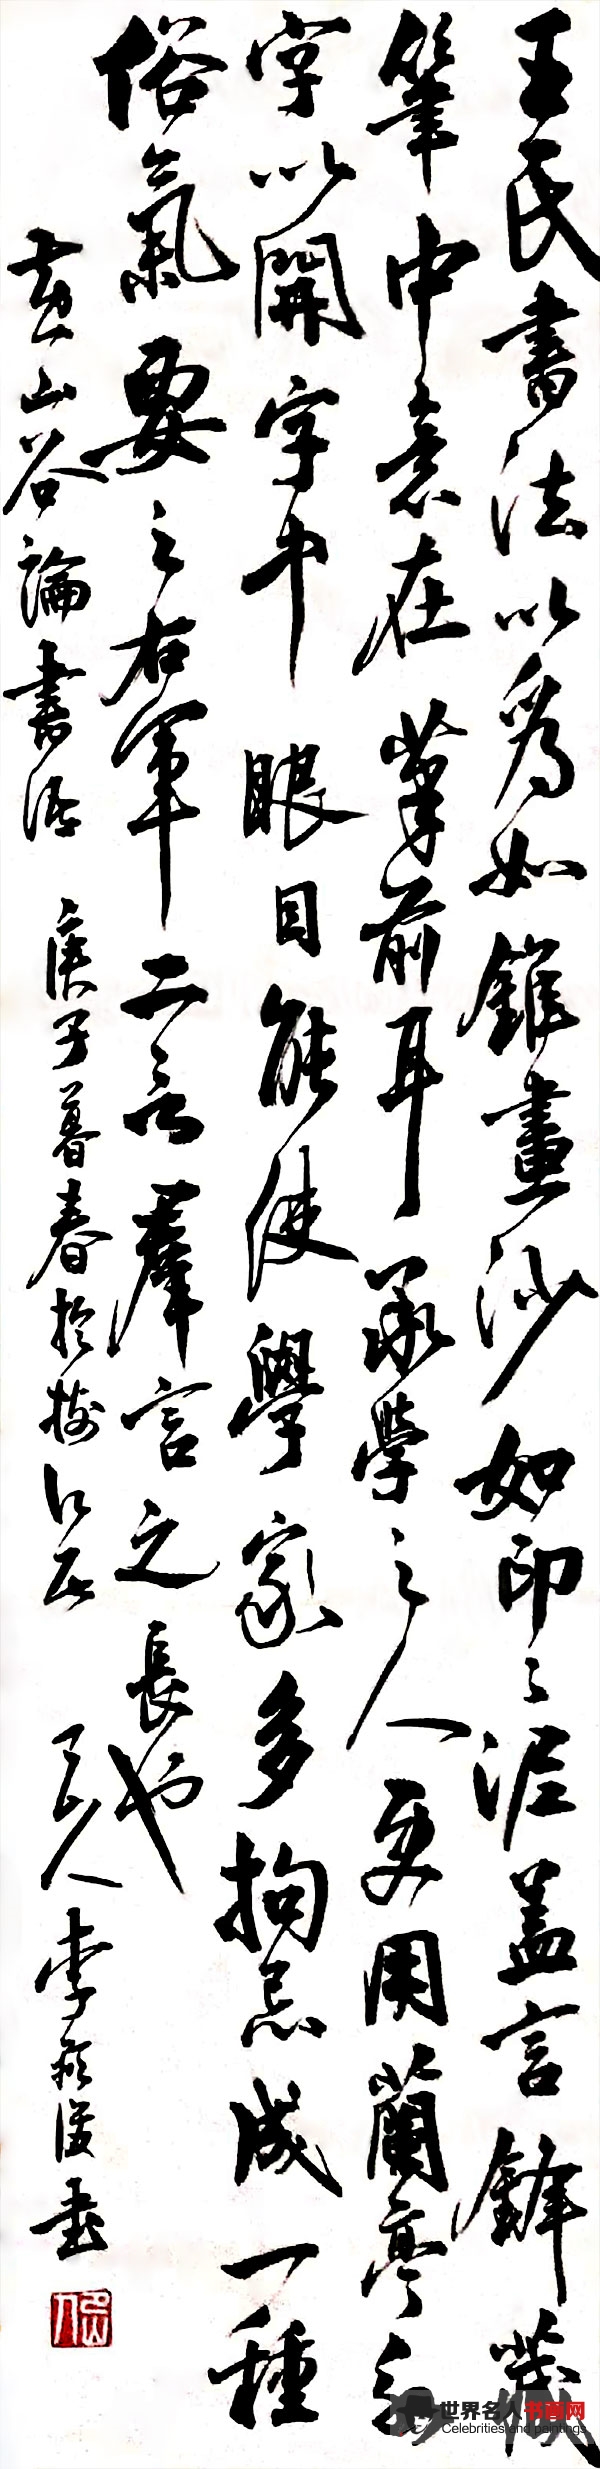 王氏書法以為如錐畫沙如印印泥蓋言鋒藏
筆中意在筆前耳承學之人更用蘭亭永
字以開字中眼目能使學家多拘忌成一種
俗氣要之右軍二言群言之長也
黃山谷論書語 庚子暮春於
山人李 書
世界名人书画网
Celebrities and paintings